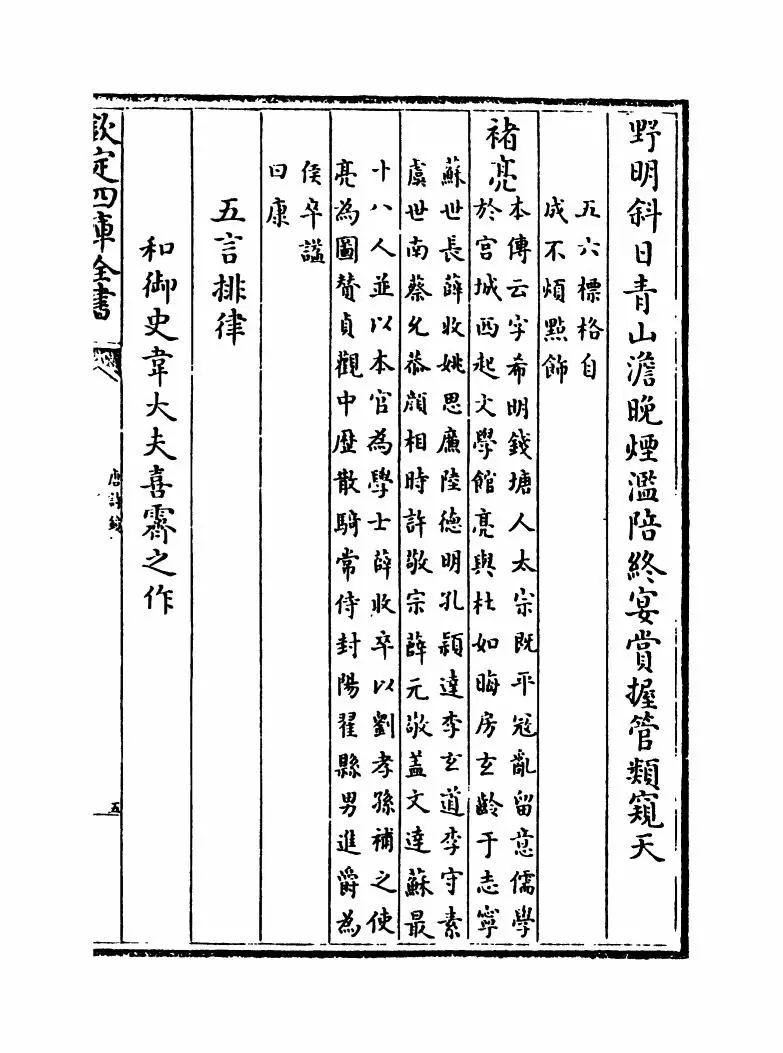 野明斜日青山澹晚煙濫陪終宴賞握管類窺天
五六標格自
成不煩㸃飾
褚亮
本傳云字希明錢塘人太宗既平冦亂留意儒學
於宫城西起文學館亮與杜如晦房玄齡于志寧
蘇世長薛收姚思廉陸德明孔頴達李玄道李守素
虞世南蔡允恭顔相時許敬宗薛元敬盖文達蘇最
十八人並以本官為學士薛收卒以劉孝孫補之使
亮為圖贊貞觀中歴散騎常侍封陽翟縣男進爵為
侯卒諡
曰康
五言排律
和御史韋大夫喜霽之作
欽定四庫全書
唐詩鏡
五